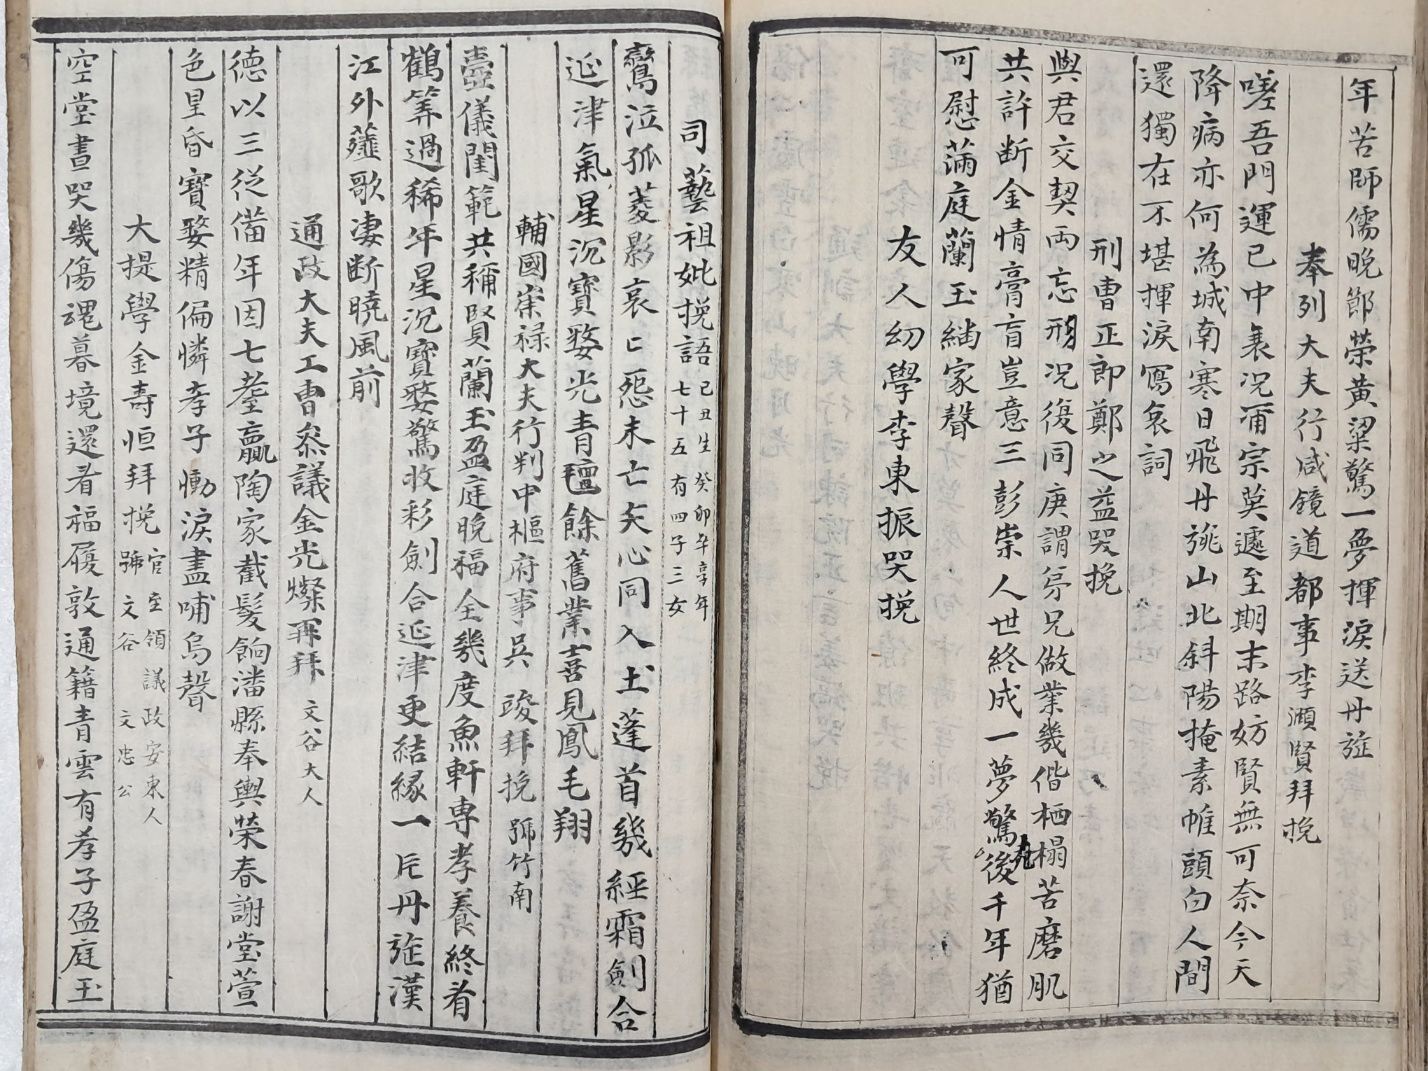 年苦師儒晩節榮黃粱驚一夢揮淚送丹旌
奉列大夫行咸鏡道都事李灝賢拜挽
嗟吾門運已中衰况甫宗莫遽至期末路妨賢無可奈今天
降病亦何為城南寒日飛丹旐山北斜陽掩素帷頭白人間
還獨在不堪揮淚寫哀詞
刑曹正郎鄭之益哭挽
與君交契兩忘形况復同庚謂弟兄做業幾偕栖榻苦磨肌
共許断金情膏肓豈意三彭祟人世終成一夢驚後千年猶
可慰滿庭蘭玉繼家聲
友人幼學李東振哭挽
司藝祖妣挽語 己丑生癸卯卒辛年
七十五有四子三女
鸞泣孤菱影哀亡怨未亡矢心同入土蓬首幾經霜劍合
延津氣星沉寶婺光青氊餘舊業喜見鳳毛翔
輔國崇禄大夫行判中樞府事吳竣拜挽 號竹南
壼儀閨範共稱賢蘭玉盈庭晩福全幾度魚軒專孝養終看
鶴筭過稀年星沉寶婺驚收彩劍合延津更結緣一片丹旌漢
江外薤歌凄斷曉風前
通政大夫工曹叅議金光燦再拜 文谷大人
德以三從備年因七耋羸陶家截髮餉潘縣奉輿榮春謝堂萱
色星昏寶婺精偏憐孝子慟淚盡哺烏聲
大提學金壽恒拜挽 官至領議政安東人
號文谷 文忠公
空堂晝哭幾傷魂暮境還看福履敦通籍青雲有孝子盈庭玉